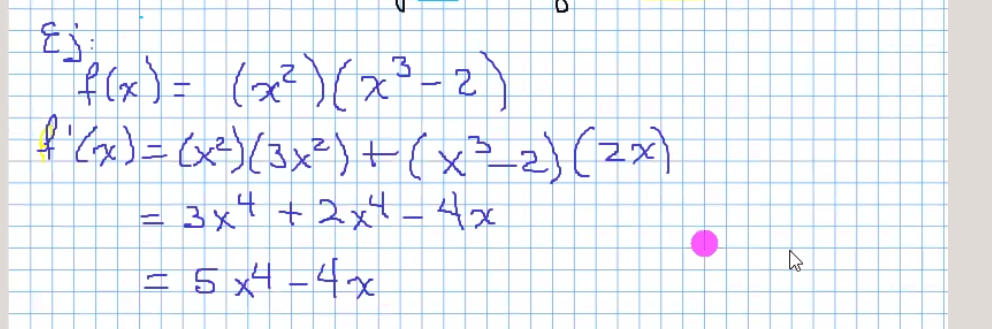 Ej:
f(x) = (x²)(x³ - 2)
f'(x) = (x²)(3x²) + (x³ - 2)(2x)
= 3x⁴ + 2x⁴ - 4x
= 5x⁴ - 4x